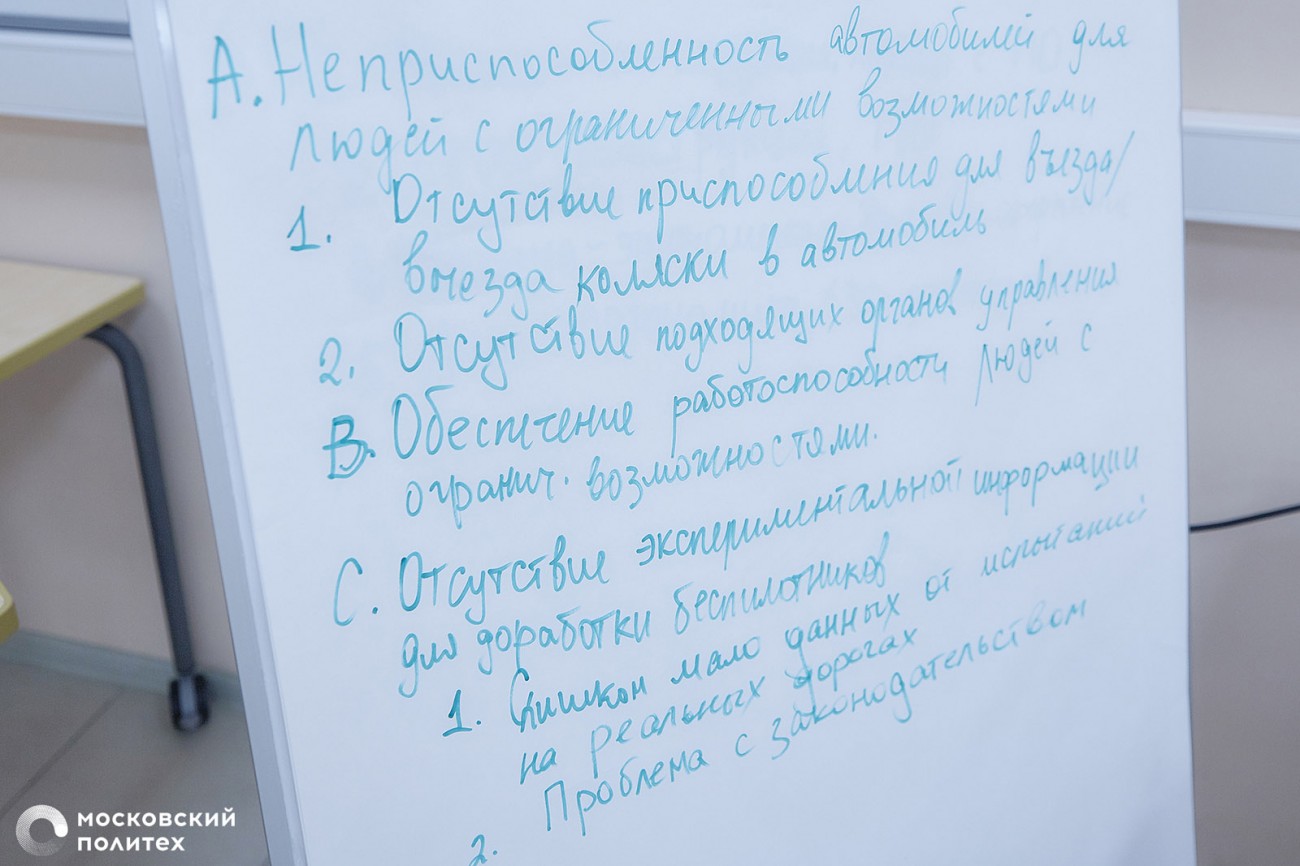 А. Неприспособленность автомобилей для
людей с ограниченными возможностями
1. Отсутствие приспособления для въезда/
выезда коляски в автомобиль
2. Отсутствие подходящих органов управления
B. Обеспечение работоспособности людей с
огранич. возможностями.
C. Отсутствие экспериментальной информации
для доработки беспилотников
1. Слишком мало данных от испытаний
на реальных дорогах
2. Проблема с законодательством
МОСКОВСКИЙ
ПОЛИТЕХ